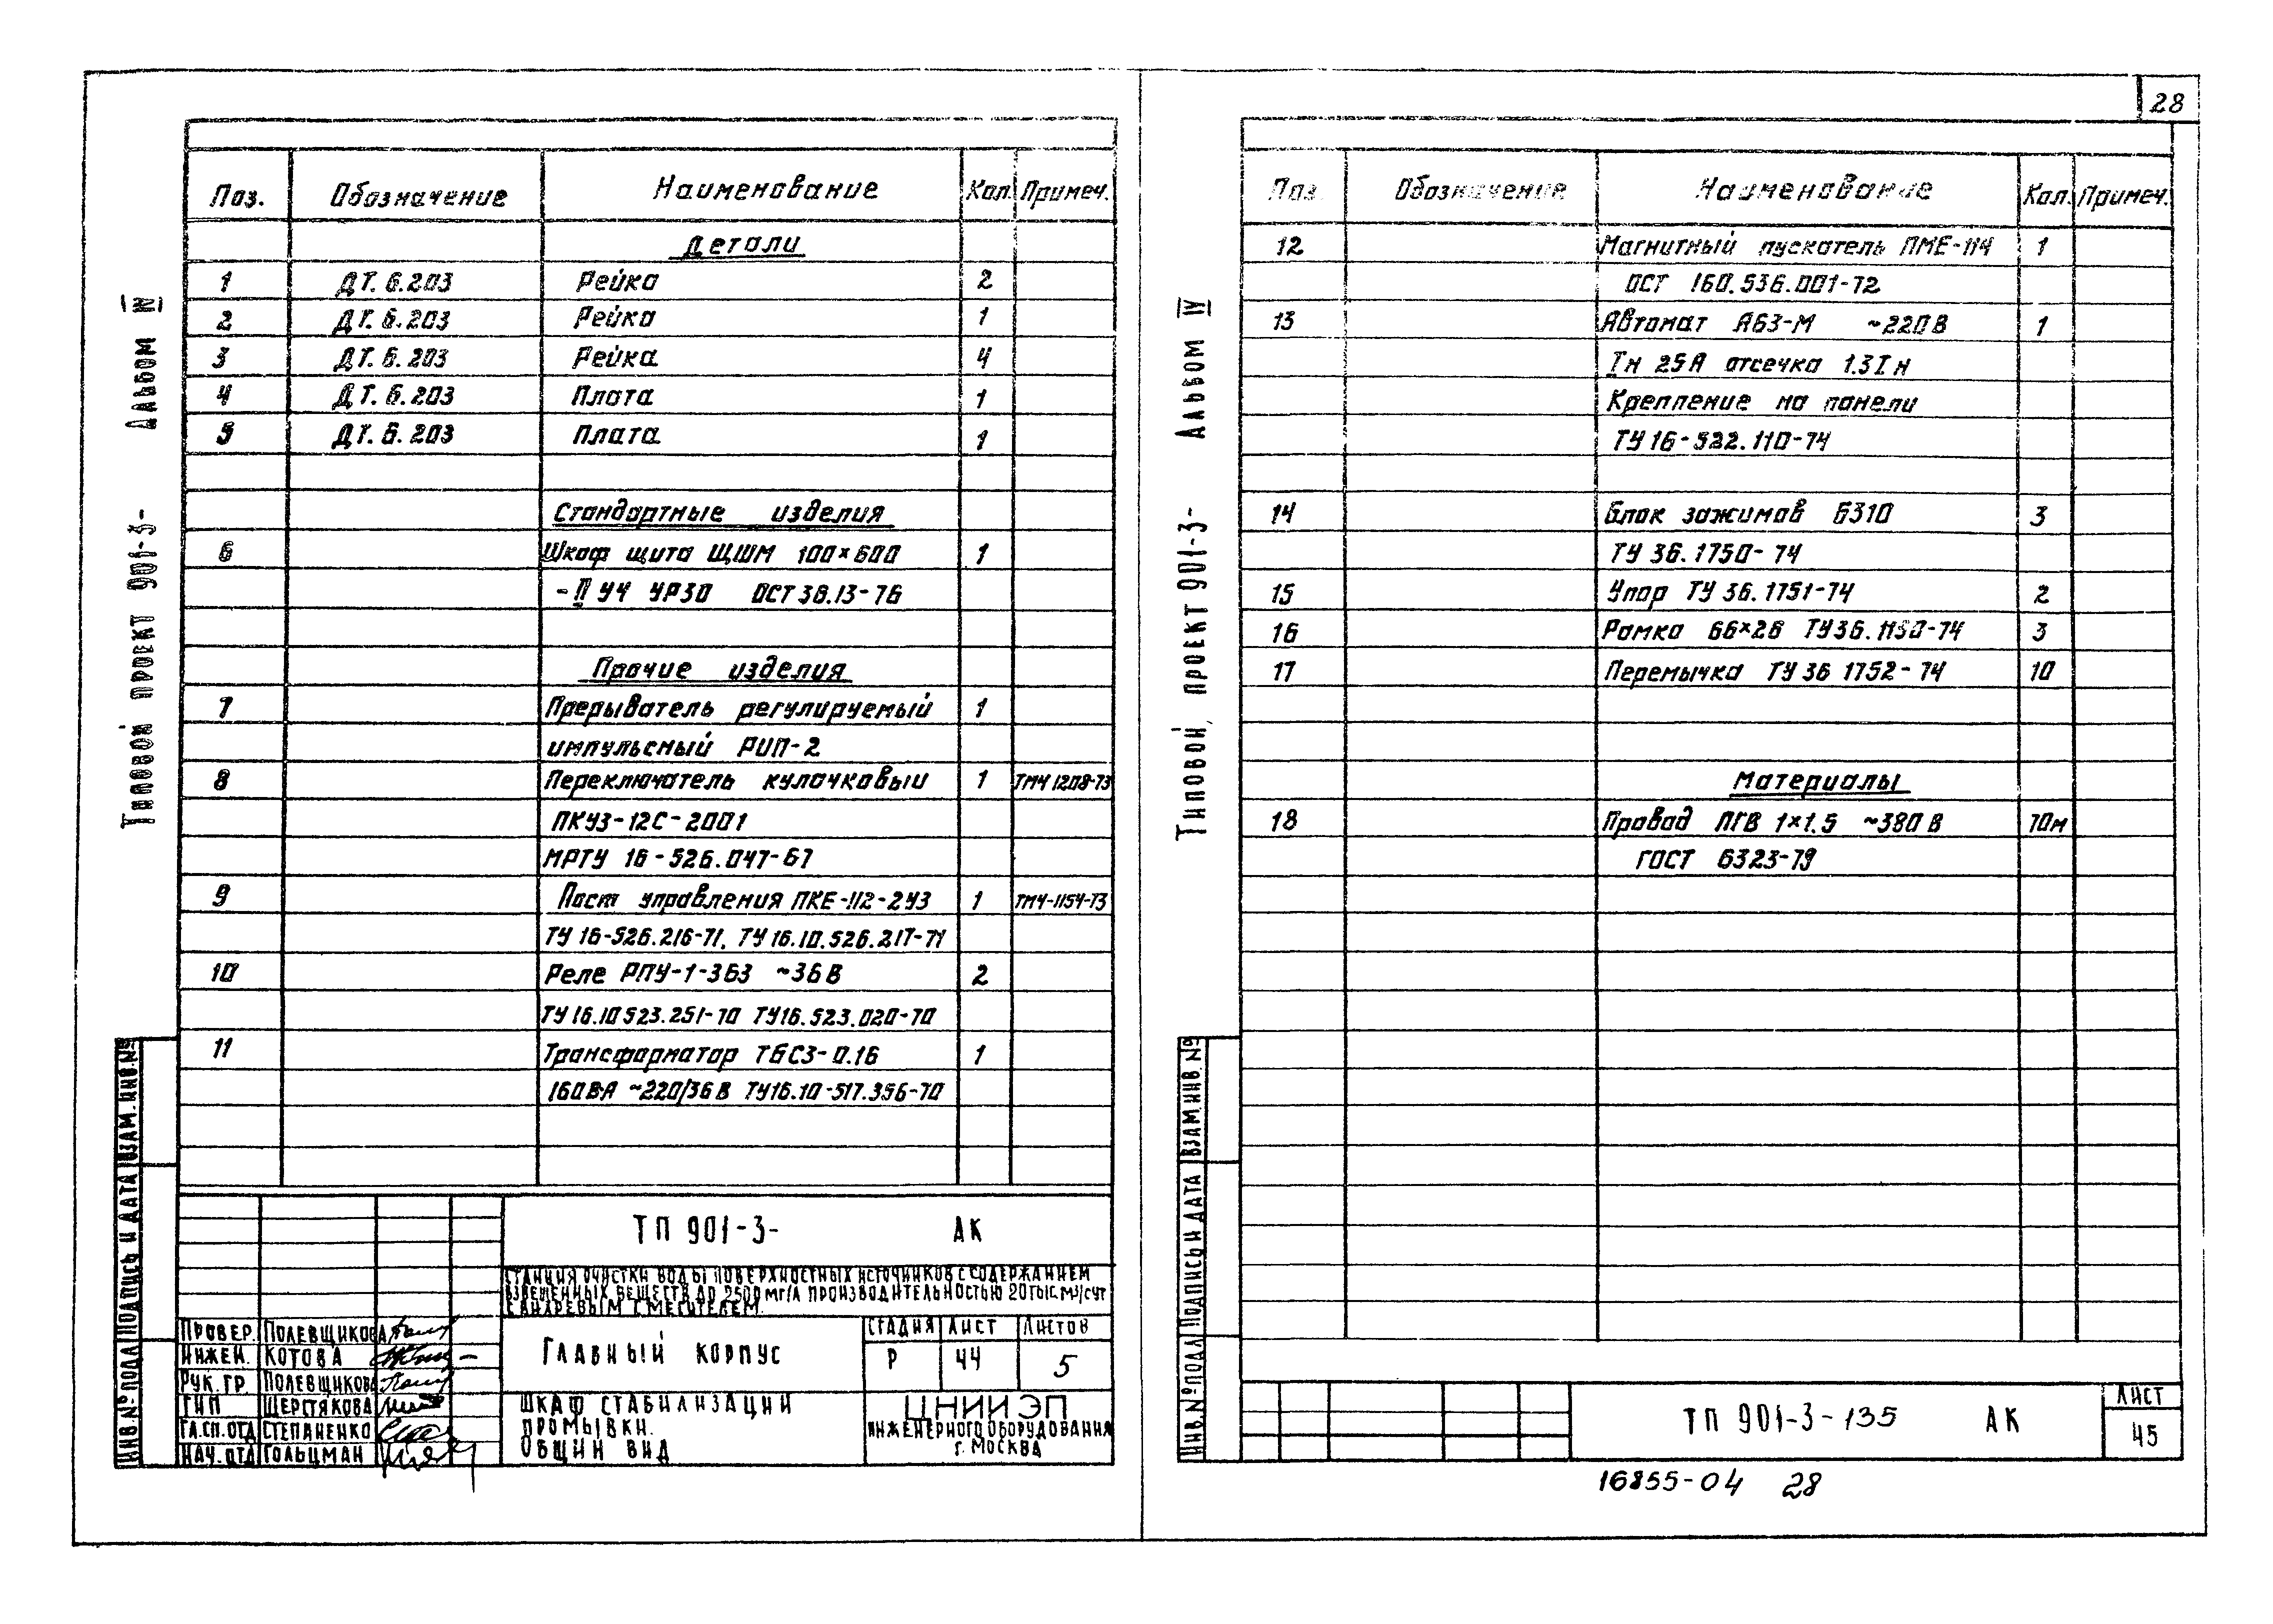 28
Типовой проект 901-3- Альбом IV
Поз. Обозначение Наименование Кол. Примеч.
Детали
1 ДТ.6.203 Рейка 2
2 ДТ.6.203 Рейка 1
3 ДТ.6.203 Рейка 4
4 ДТ.6.203 Плата 1
5 ДТ.6.203 Плата 1
Стандартные изделия
6 Шкаф щита ЩШМ 100×600 1
-II У4 УР30 ОСТ 36.13-76
Прочие изделия
7 Прерыватель регулируемый 1
импульсный РИП-2
8 Переключатель кулачковый 1 ТМ4 1208-73
ПКУ3-12С-2001
МРТУ 16-526.047-67
9 Пост управления ПКЕ-112-2У3 1 ТМ4-1154-73
ТУ 16-526.216-71, ТУ 16.10.526.217-71
10 Реле РПУ-1-363 ~36В 2
ТУ 16.10 523.251-70 ТУ16.523.020-70
11 Трансформатор ТБС3-0.16 1
160ВА ~220/36В ТУ16.10-517.356-70
ТП 901-3- АК
Станция очистки воды поверхностных источников с содержанием
взвешенных веществ до 2500 мг/л производительностью 20 тыс. м3/сут
с вихревым смесителем.
Провер. Полевщикова
Инжен. Котова
Рук. гр. Полевщикова
ГИП Шерстякова
Гл.сп.отд Степаненко
Нач. отд Гольцман
Главный корпус
Стадия Лист Листов
Р 44 5
Шкаф стабилизации
промывки.
Общий вид
ЦНИИЭП
инженерного оборудования
г. Москва
Инв.№ подл Подпись и дата Взам.инв.№
Типовой проект 901-3- Альбом IV
Поз. Обозначение Наименование Кол. Примеч.
12 Магнитный пускатель ПМЕ-114 1
ОСТ 160.536.001-72
13 Автомат А63-М ~220В 1
Iн 25А отсечка 1.3Iн
Крепление на панели
ТУ 16-522.110-74
14 Блок зажимов Б310 3
ТУ 36.1750-74
15 Упор ТУ 36.1751-74 2
16 Рамка 66×26 ТУ36.1130-74 3
17 Перемычка ТУ 36 1752-74 10
Материалы
18 Провод ПГВ 1×1.5 ~380В 10м
ГОСТ 6323-79
Инв.№ подл Подпись и дата Взам.инв.№
ТП 901-3-135 АК
Лист
45
16855-04 28